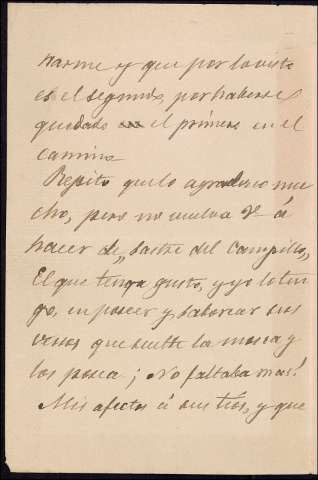 narme y que por lo visto
es el segundo, por haberse
quedado el primero en el
camino
Repito que lo agradezco mu
cho, pero no vuelva Vd. á
hacer de „ Sastre del Campillo „
El que tenga gusto, y yo lo ten
go, en poseer y saborear sus
versos que suelte la mosca y
los posea; ¡No faltaba mas!
Mis afectos á sus tíos, y que